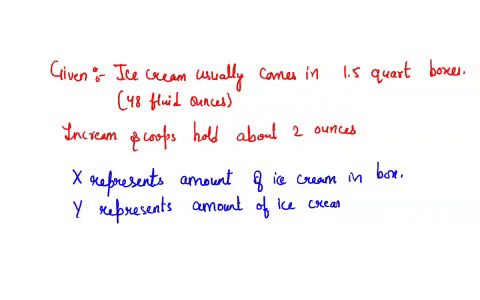 Given :- Ice cream usually comes in 1.5 quart boxes.
(48 fluid ounces)
Incream scoops hold about 2 ounces
X represents amount of ice cream in box.
Y represents amount of ice crear